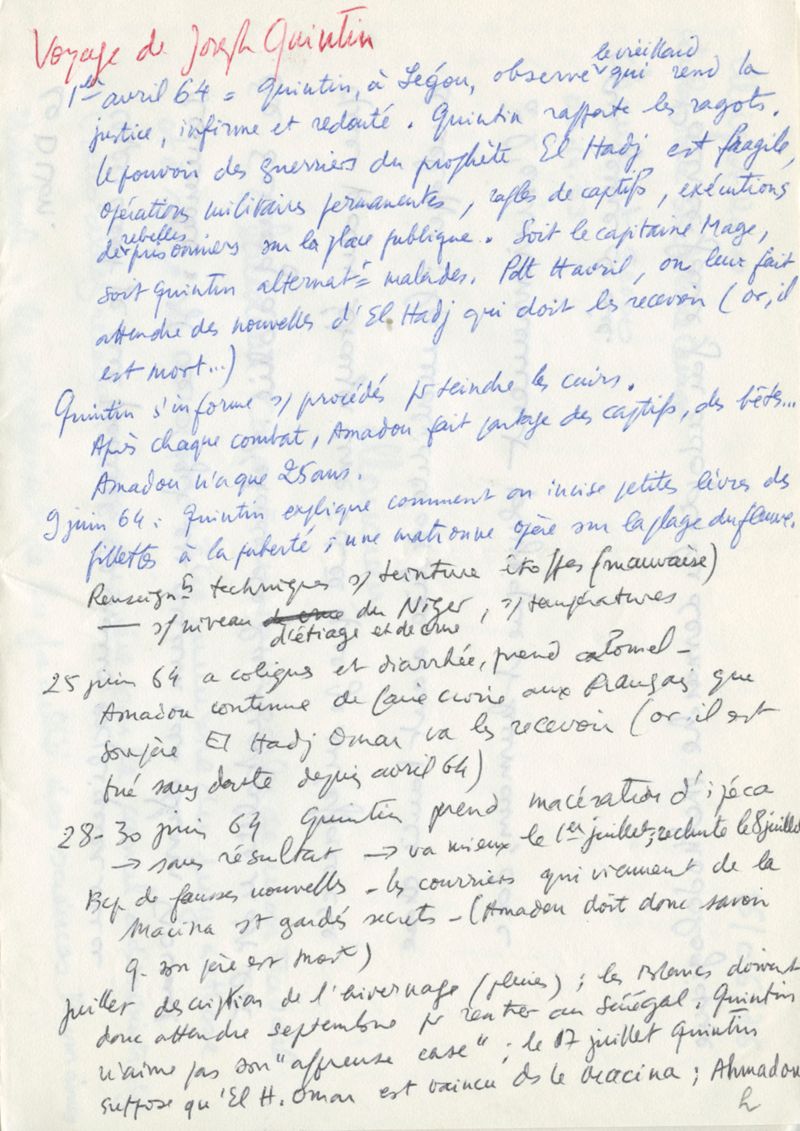 Voyage de Joseph Quintin
le vieillard
1er avril 64 = Quintin, à Ségou, observe qui rend la
justice, infirme et redouté. Quintin rapporte les ragots.
le pouvoir des guerriers du prophète El Hadj est fragile,
opérations militaires permanentes, rafles de captifs, exécutions
rebelles
de prisonniers sur la place publique. Soit le capitaine Mage,
soit Quintin alternat. malades. Pdt avril, on leur fait
attendre des nouvelles d'El Hadj qui doit les recevoir (or, il
est mort...)
Quintin s'informe s/ procédés pr teindre les cuirs.
Après chaque combat, Amadou fait partage des captifs, des bêtes...
Amadou n'a que 25 ans.
9 juin 64 : Quintin explique comment on incise petites lèvres des
fillettes à la puberté ; une matronne opère sur la plage du fleuve.
Renseignts techniques s/ teinture étoffes (mauvaise)
— s/ niveau du Niger, s/ températures
d'étiage et de crue
25 juin 64 a coliques et diarrhée, prend calomel -
Amadou continue de faire croire aux Français que
son père El Hadj Omar va les recevoir (or il est
tué sans doute depuis avril 64)
28-30 juin 64 Quintin prend macération d'ipéca
→ sans résultat → va mieux le 1er juillet ; rechute le 8 juillet
Bcp de fausses nouvelles - les courriers qui viennent de la
Macina st gardés secrets - (Amadou doit donc savoir
q. son père est mort)
juillet description de l'hivernage (pluies) ; les Blancs doivent
donc attendre septembre pr rentrer au Sénégal. Quintin
n'aime pas son "affreuse case" ; le 17 juillet Quintin
suppose qu'El H. Omar est vaincu ds le Macina ; Ahmadou